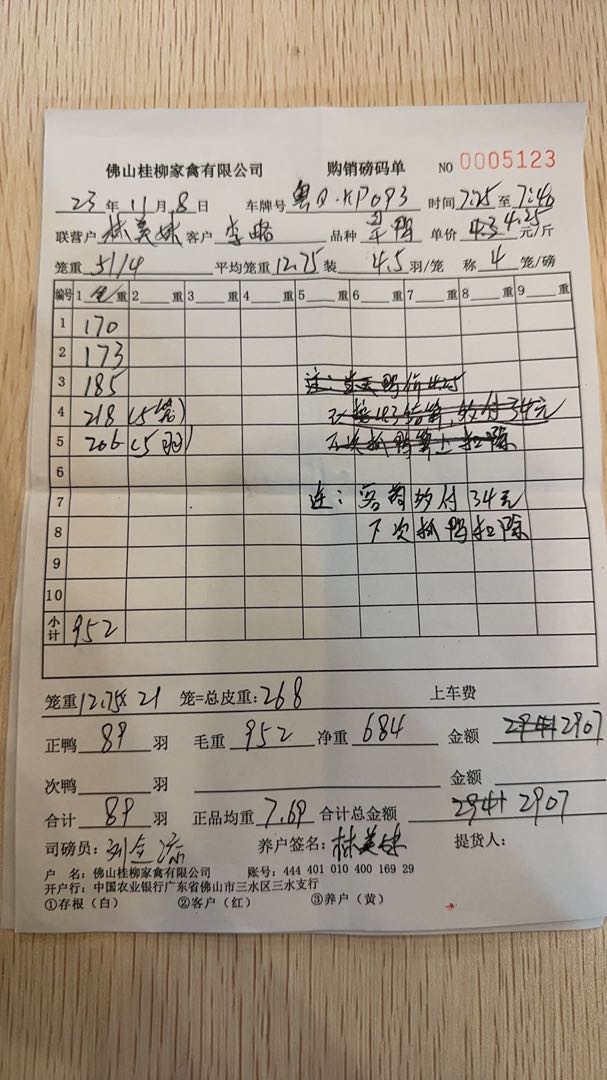 佛山桂柳家禽有限公司 购销磅码单 NO 0005123
23 年 11 月 8 日 车牌号 粤Q·KP093 时间 7:25 至 7:40
联营户 林美妹 客户 李 品种 鸭 单价 4.3 4.25 元/斤
笼重 51/4 平均笼重 12.75 装 4.5 羽/笼 称 4 笼/磅
编号 1 毛 重 2 重 3 重 4 重 5 重 6 重 7 重 8 重 9 重
1 170
2 173
3 185 注：鸭价4.25
4 218 (5笼) 结算,多付34元
5 206 (5羽) 下次抓鸭扣除
6
7 注：客商多付34元
8 下次抓鸭扣除
9
10
小计 952
笼重 12.75× 21 笼=总皮重: 268 上车费
正鸭 89 羽 毛重 952 净重 684 金额 2941 2907
次鸭 羽 金额
合计 89 羽 正品均重 7.69 合计总金额 2941 2907
司磅员: 刘 养户签名: 林美妹 提货人:
户 名: 佛山桂柳家禽有限公司 账号: 444 401 010 400 169 29
开户行: 中国农业银行广东省佛山市三水区三水支行
①存根（白） ②客户（红） ③养户（黄）